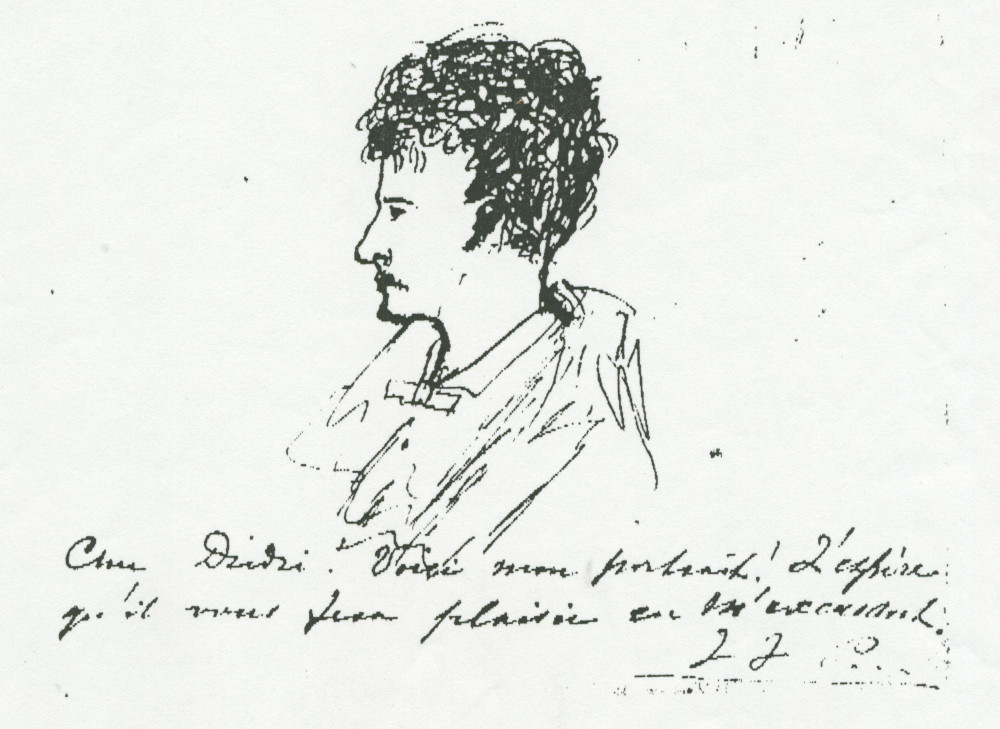 Cher Dzidzi! Voici mon portrait! J'espère
qu'il vous fera plaisir en m'excusant.
J J